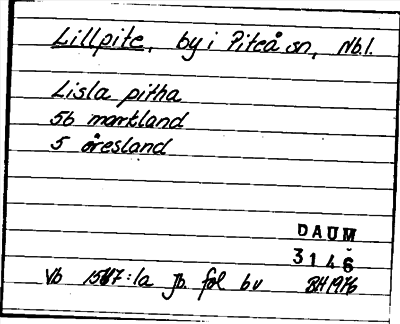 Lillpite, by i Piteå sn, Nb.l.
Lisla pitha
56 markland
5 öresland
DAUM
3146
Vb 1567:1a Jb. fol bv BH 1976